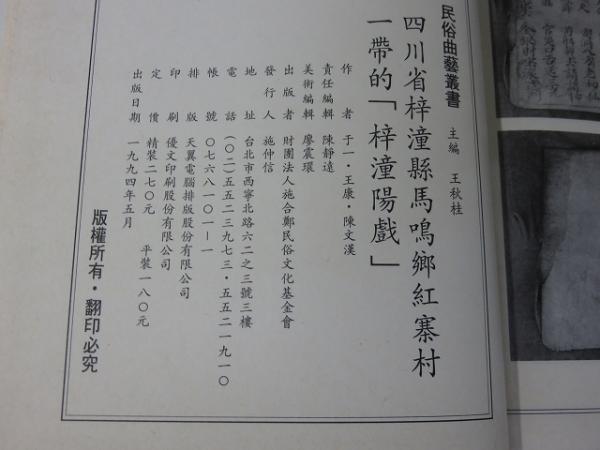 民俗曲藝叢書
主編 王秋桂
四川省梓潼縣馬鳴鄉紅寨村
一帶的「梓潼陽戲」
作者 于一・王康・陳文漢
責任編輯 陳靜遠
美術編輯 廖震環
出版者 財團法人施合鄭民俗文化基金會
發行人 施仲信
地址 台北市西寧北路六二之三號三樓
電話 (〇二)五五二三九七三・五五二一九一〇
帳號 〇七六八一〇一-一
排版 天翼電腦排版股份有限公司
印刷 優文印刷股份有限公司
定價 精裝二七〇元 平裝一八〇元
出版日期 一九九四年五月
版權所有・翻印必究